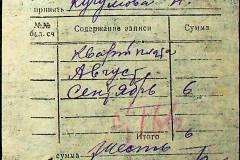 принять
№№ бал. сч Содержание записи Сумма
Квартплата
Август
Сентябрь 6
Итого 6
сумма шесть